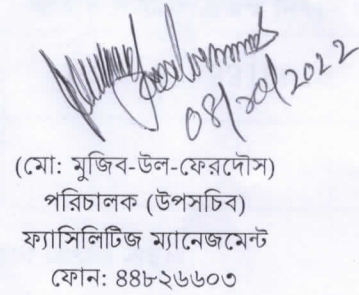 08/20/2022
(মো: মুজিব-উল-ফেরদৌস)
পরিচালক (উপসচিব)
ফ্যাসিলিটিজ ম্যানেজমেন্ট
ফোন: ৪৪৮২৬৬০৩